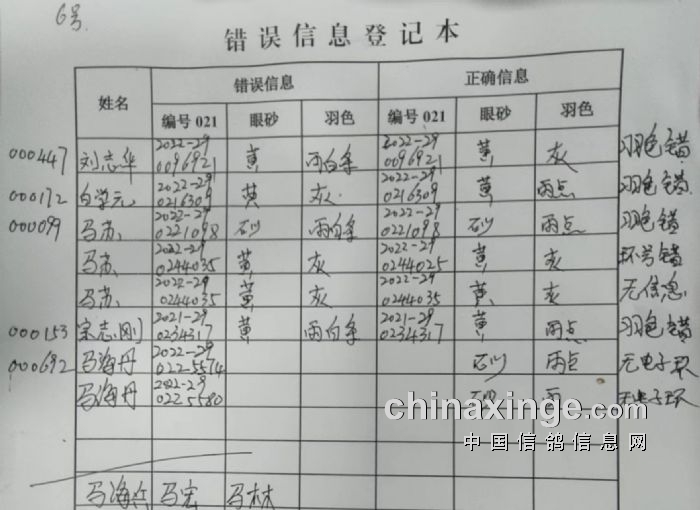 6号
错误信息登记本
姓名 错误信息 正确信息
编号021 眼砂 羽色 编号021 眼砂 羽色
000447 刘志华 2022-29 0096921 黄 雨白条 2022-29 0096921 黄 灰 羽色错
000172 白学元 2022-29 0216309 黄 灰 2022-29 0216309 黄 雨点 羽色错
000099 马苏 2022-29 0221098 砂 雨白条 2022-29 0221098 砂 雨点 羽色错
马苏 2022-29 0244035 黄 灰 2022-29 0244025 黄 灰 环号错
马苏 2022-29 0244035 黄 灰 2022-29 0244035 黄 灰 无信息
000153 宋志刚 2021-29 0234317 黄 雨白条 2021-29 0234317 黄 雨点 羽色错
000692 马海丹 2022-29 0225574 砂 雨点 无电子环
马海丹 2022-29 0225580 砂 雨 无电子环
chinaxinge.com
中国信鸽信息网
马海兵 马宏 马林